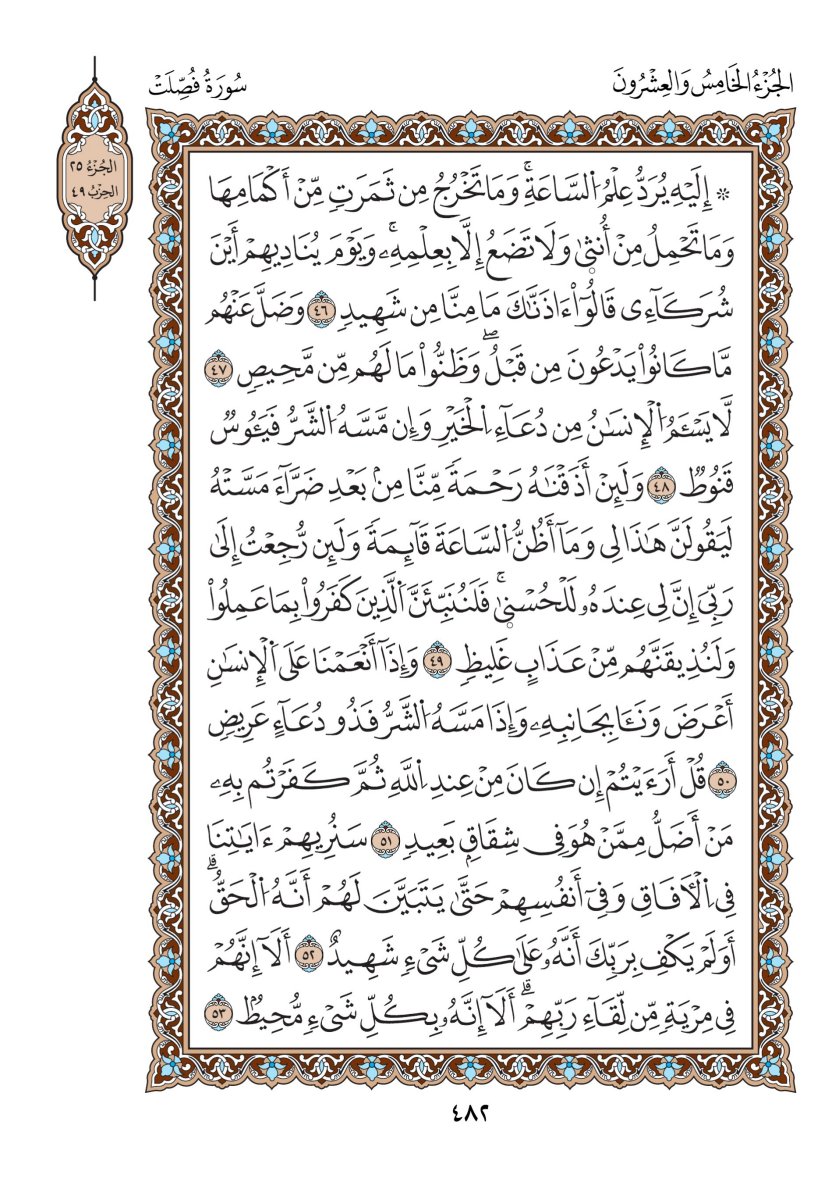 الجُزْءُ الخَامِسُ وَالعِشْرُونَ
سُورَةُ فُصِّلَتْ
الجُزءُ ٢٥
الحِزْبُ ٤٩
۞ إِلَيْهِ يُرَدُّ عِلْمُ اُ۬لسَّاعَةِۚ وَمَا تَخْرُجُ مِن ثَمَرَتٖ مِّنْ أَكْمَامِهَا
وَمَا تَحْمِلُ مِنْ أُنث۪ىٰ وَلَا تَضَعُ إِلَّا بِعِلْمِهِۦۚ وَيَوْمَ يُنَادِيهِمْ أَيْنَ
شُرَكَآءِى قَالُوٓاْ ءَاذَنَّٰكَ مَا مِنَّا مِن شَهِيدٖ ٤٦ وَضَلَّ عَنْهُم
مَّا كَانُواْ يَدْعُونَ مِن قَبْلُۖ وَظَنُّواْ مَا لَهُم مِّن مَّحِيصٖ ٤٧
لَّا يَسْـَٔمُ اُ۬لْإِنسَٰنُ مِن دُعَآءِ اِ۬لْخَيْرِ وَإِن مَّسَّهُ اُ۬لشَّرُّ فَيَـُٔوسٞ
قَنُوطٞ ٤٨ وَلَئِنْ أَذَقْنَٰهُ رَحْمَةٗ مِّنَّا مِنۢ بَعْدِ ضَرَّآءَ مَسَّتْهُ
لَيَقُولَنَّ هَٰذَا لِى وَمَآ أَظُنُّ اُ۬لسَّاعَةَ قَآئِمَةٗ وَلَئِن رُّجِعْتُ إِلَىٰ
رَبِّىَ إِنَّ لِى عِندَهُۥ لَلْحُسْن۪ىٰۚ فَلَنُنَبِّئَنَّ اَ۬لَّذِينَ كَفَرُواْ بِمَا عَمِلُواْ
وَلَنُذِيقَنَّهُم مِّنْ عَذَابٍ غَلِيظٖ ٤٩ وَإِذَآ أَنْعَمْنَا عَلَى اَ۬لْإِنسَٰنِ
أَعْرَضَ وَنَـَٔا بِجَانِبِهِۦ وَإِذَا مَسَّهُ اُ۬لشَّرُّ فَذُو دُعَآءٍ عَرِيضٖ
٥٠ قُلْ أَرَءَيْتُمْ إِن كَانَ مِنْ عِندِ اِ۬للَّهِ ثُمَّ كَفَرْتُم بِهِۦ
مَنْ أَضَلُّ مِمَّنْ هُوَ فِى شِقَاقِۭ بَعِيدٖ ٥١ سَنُرِيهِمْ ءَايَٰتِنَا
فِى اِ۬لْأٓفَاقِ وَفِىٓ أَنفُسِهِمْ حَتَّىٰ يَتَبَيَّنَ لَهُمْ أَنَّهُ اُ۬لْحَقُّۗ
أَوَلَمْ يَكْفِ بِرَبِّكَ أَنَّهُۥ عَلَىٰ كُلِّ شَىْءٖ شَهِيدٌ ٥٢ أَلَآ إِنَّهُمْ
فِى مِرْيَةٖ مِّن لِّقَآءِ رَبِّهِمْۗ أَلَآ إِنَّهُۥ بِكُلِّ شَىْءٖ مُّحِيطُۢ ٥٣
٤٨٢